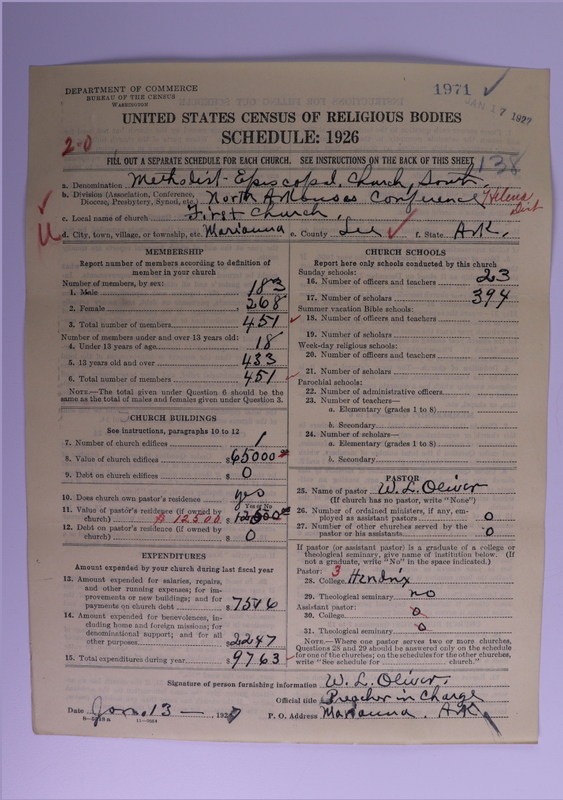 DEPARTMENT OF COMMERCE
BUREAU OF THE CENSUS
WASHINGTON
1971 ✓
JAN 17 1927
UNITED STATES CENSUS OF RELIGIOUS BODIES
SCHEDULE: 1926
2-0
138
FILL OUT A SEPARATE SCHEDULE FOR EACH CHURCH. SEE INSTRUCTIONS ON THE BACK OF THIS SHEET
a. Denomination Methodist Episcopal Church, South
b. Division (Association, Conference, Diocese, Presbytery, Synod, etc.) North Arkansas Conference / Helena Dist
c. Local name of church First Church,
d. City, town, village, or township, etc. Marianna e. County Lee f. State Ark.
MEMBERSHIP
Report number of members according to definition of
member in your church
Number of members, by sex:
1. Male 183
2. Female 268
3. Total number of members 451
Number of members under and over 13 years old:
4. Under 13 years of age 18
5. 13 years old and over 433
6. Total number of members 451
NOTE.—The total given under Question 6 should be the
same as the total of males and females given under Question 3.
CHURCH BUILDINGS
See instructions, paragraphs 10 to 12
7. Number of church edifices 1
8. Value of church edifices $65000
9. Debt on church edifices $ 0
10. Does church own pastor's residence yes
Yes or No
11. Value of pastor's residence (if owned by
church) $12500 $12500
12. Debt on pastor's residence (if owned by
church) $ 0
EXPENDITURES
Amount expended by your church during last fiscal year
13. Amount expended for salaries, repairs,
and other running expenses; for im-
provements or new buildings; and for
payments on church debt $7516
14. Amount expended for benevolences, in-
cluding home and foreign missions; for
denominational support; and for all
other purposes $2247
15. Total expenditures during year $9763
CHURCH SCHOOLS
Report here only schools conducted by this church
Sunday schools:
16. Number of officers and teachers 23
17. Number of scholars 394
Summer vacation Bible schools:
18. Number of officers and teachers
19. Number of scholars
Week-day religious schools:
20. Number of officers and teachers
21. Number of scholars
Parochial schools:
22. Number of administrative officers
23. Number of teachers—
a. Elementary (grades 1 to 8)
b. Secondary
24. Number of scholars—
a. Elementary (grades 1 to 8)
b. Secondary
PASTOR
25. Name of pastor W. L. Oliver
(If church has no pastor, write "None")
26. Number of ordained ministers, if any, em-
ployed as assistant pastors 0
27. Number of other churches served by the
pastor or his assistants 0
If pastor (or assistant pastor) is a graduate of a college or
theological seminary, give name of institution below. (If
not a graduate, write "No" in the space indicated.)
Pastor: 3
28. College Hendrix
29. Theological seminary no
Assistant pastor:
30. College 0
31. Theological seminary 0
NOTE.—Where one pastor serves two or more churches,
Questions 28 and 29 should be answered only on the schedule
for one of the churches; on the schedules for the other churches,
write "See schedule for ........ church."
Signature of person furnishing information W. L. Oliver,
Official title Preacher in Charge
Date Jan. 13 —, 1927 P. O. Address Marianna, Ark,
8—5518 a 11—9084